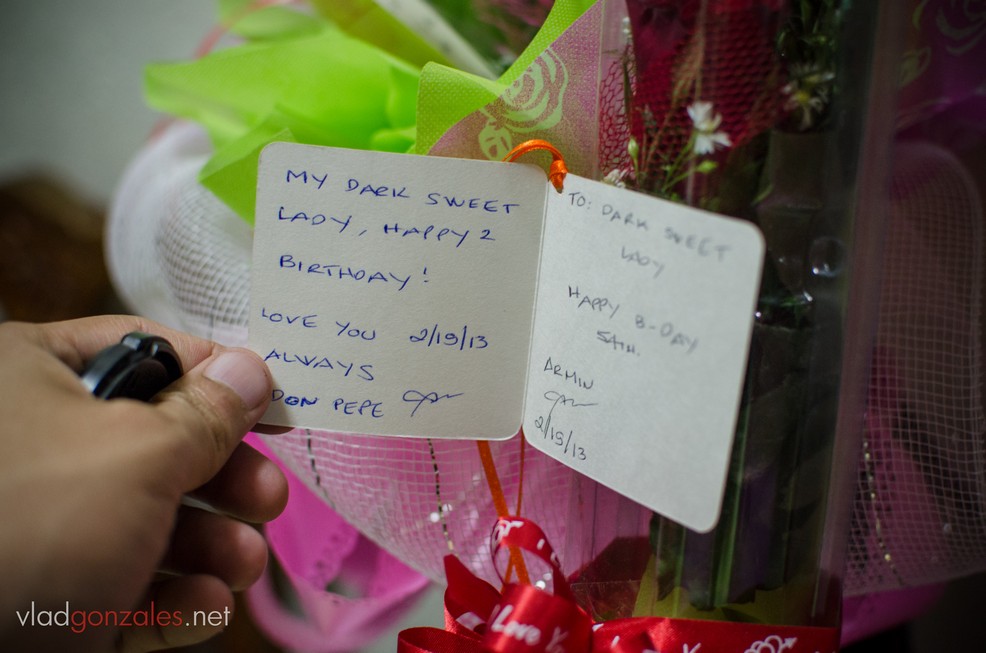 MY DARK SWEET
LADY, HAPPY 2
BIRTHDAY!
LOVE YOU 2/19/13
ALWAYS
DON PEPE
TO: DARK SWEET
LADY
HAPPY B-DAY
ARMIN
2/19/13
Love
vladgonzales.net